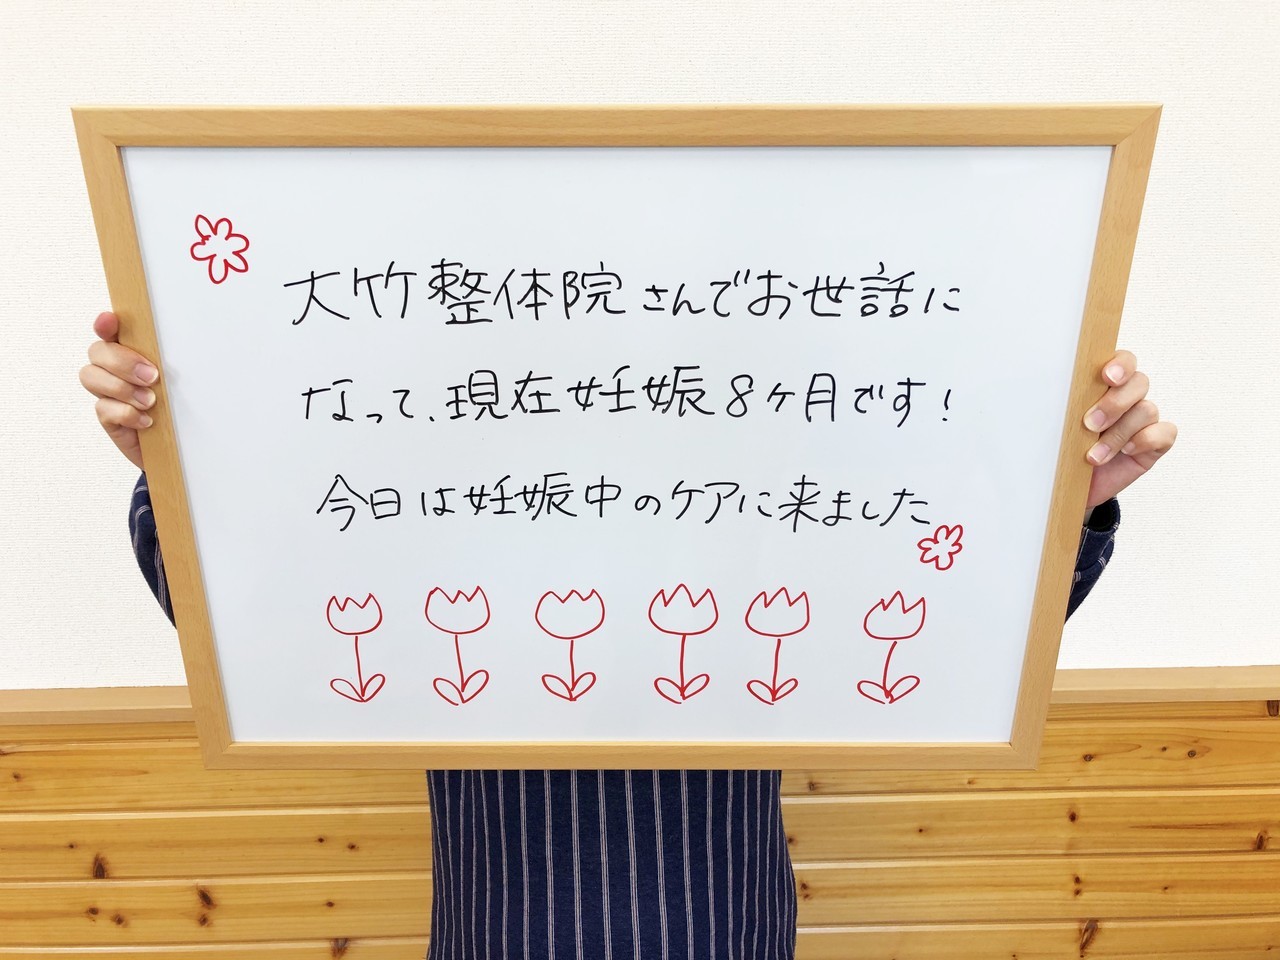 大竹整体院さんでお世話に
なって、現在妊娠8ヶ月です!
今日は妊娠中のケアに来ました